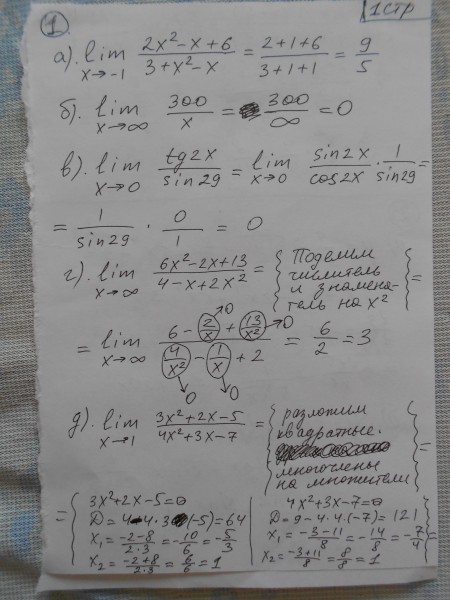 1 стр
①
а). lim x→-1 (2x²-x+6)/(3+x²-x) = (2+1+6)/(3+1+1) = 9/5
б). lim x→∞ 300/x = 300/∞ = 0
в). lim x→0 tg2x/sin29 = lim x→0 sin2x/cos2x · 1/sin29 =
= 1/sin29 · 0/1 = 0
г). lim x→∞ (6x²-2x+13)/(4-x+2x²) = { Поделим
числитель
и знамена-
тель на x² } =
= lim x→∞ (6 - 2/x + 13/x²)/(4/x² - 1/x + 2) = 6/2 = 3
→0 →0
→0 →0
д). lim x→1 (3x²+2x-5)/(4x²+3x-7) = { разложим
квадратные
многочлены
на множители } =
= { 3x²+2x-5=0
D = 4-4·3·(-5)=64
x₁ = (-2-8)/(2·3) = -10/6 = -5/3
x₂ = (-2+8)/(2·3) = 6/6 = 1
4x²+3x-7=0
D = 9-4·4·(-7)=121
x₁ = (-3-11)/8 = -14/8 = -7/4
x₂ = (-3+11)/8 = 8/8 = 1 } =